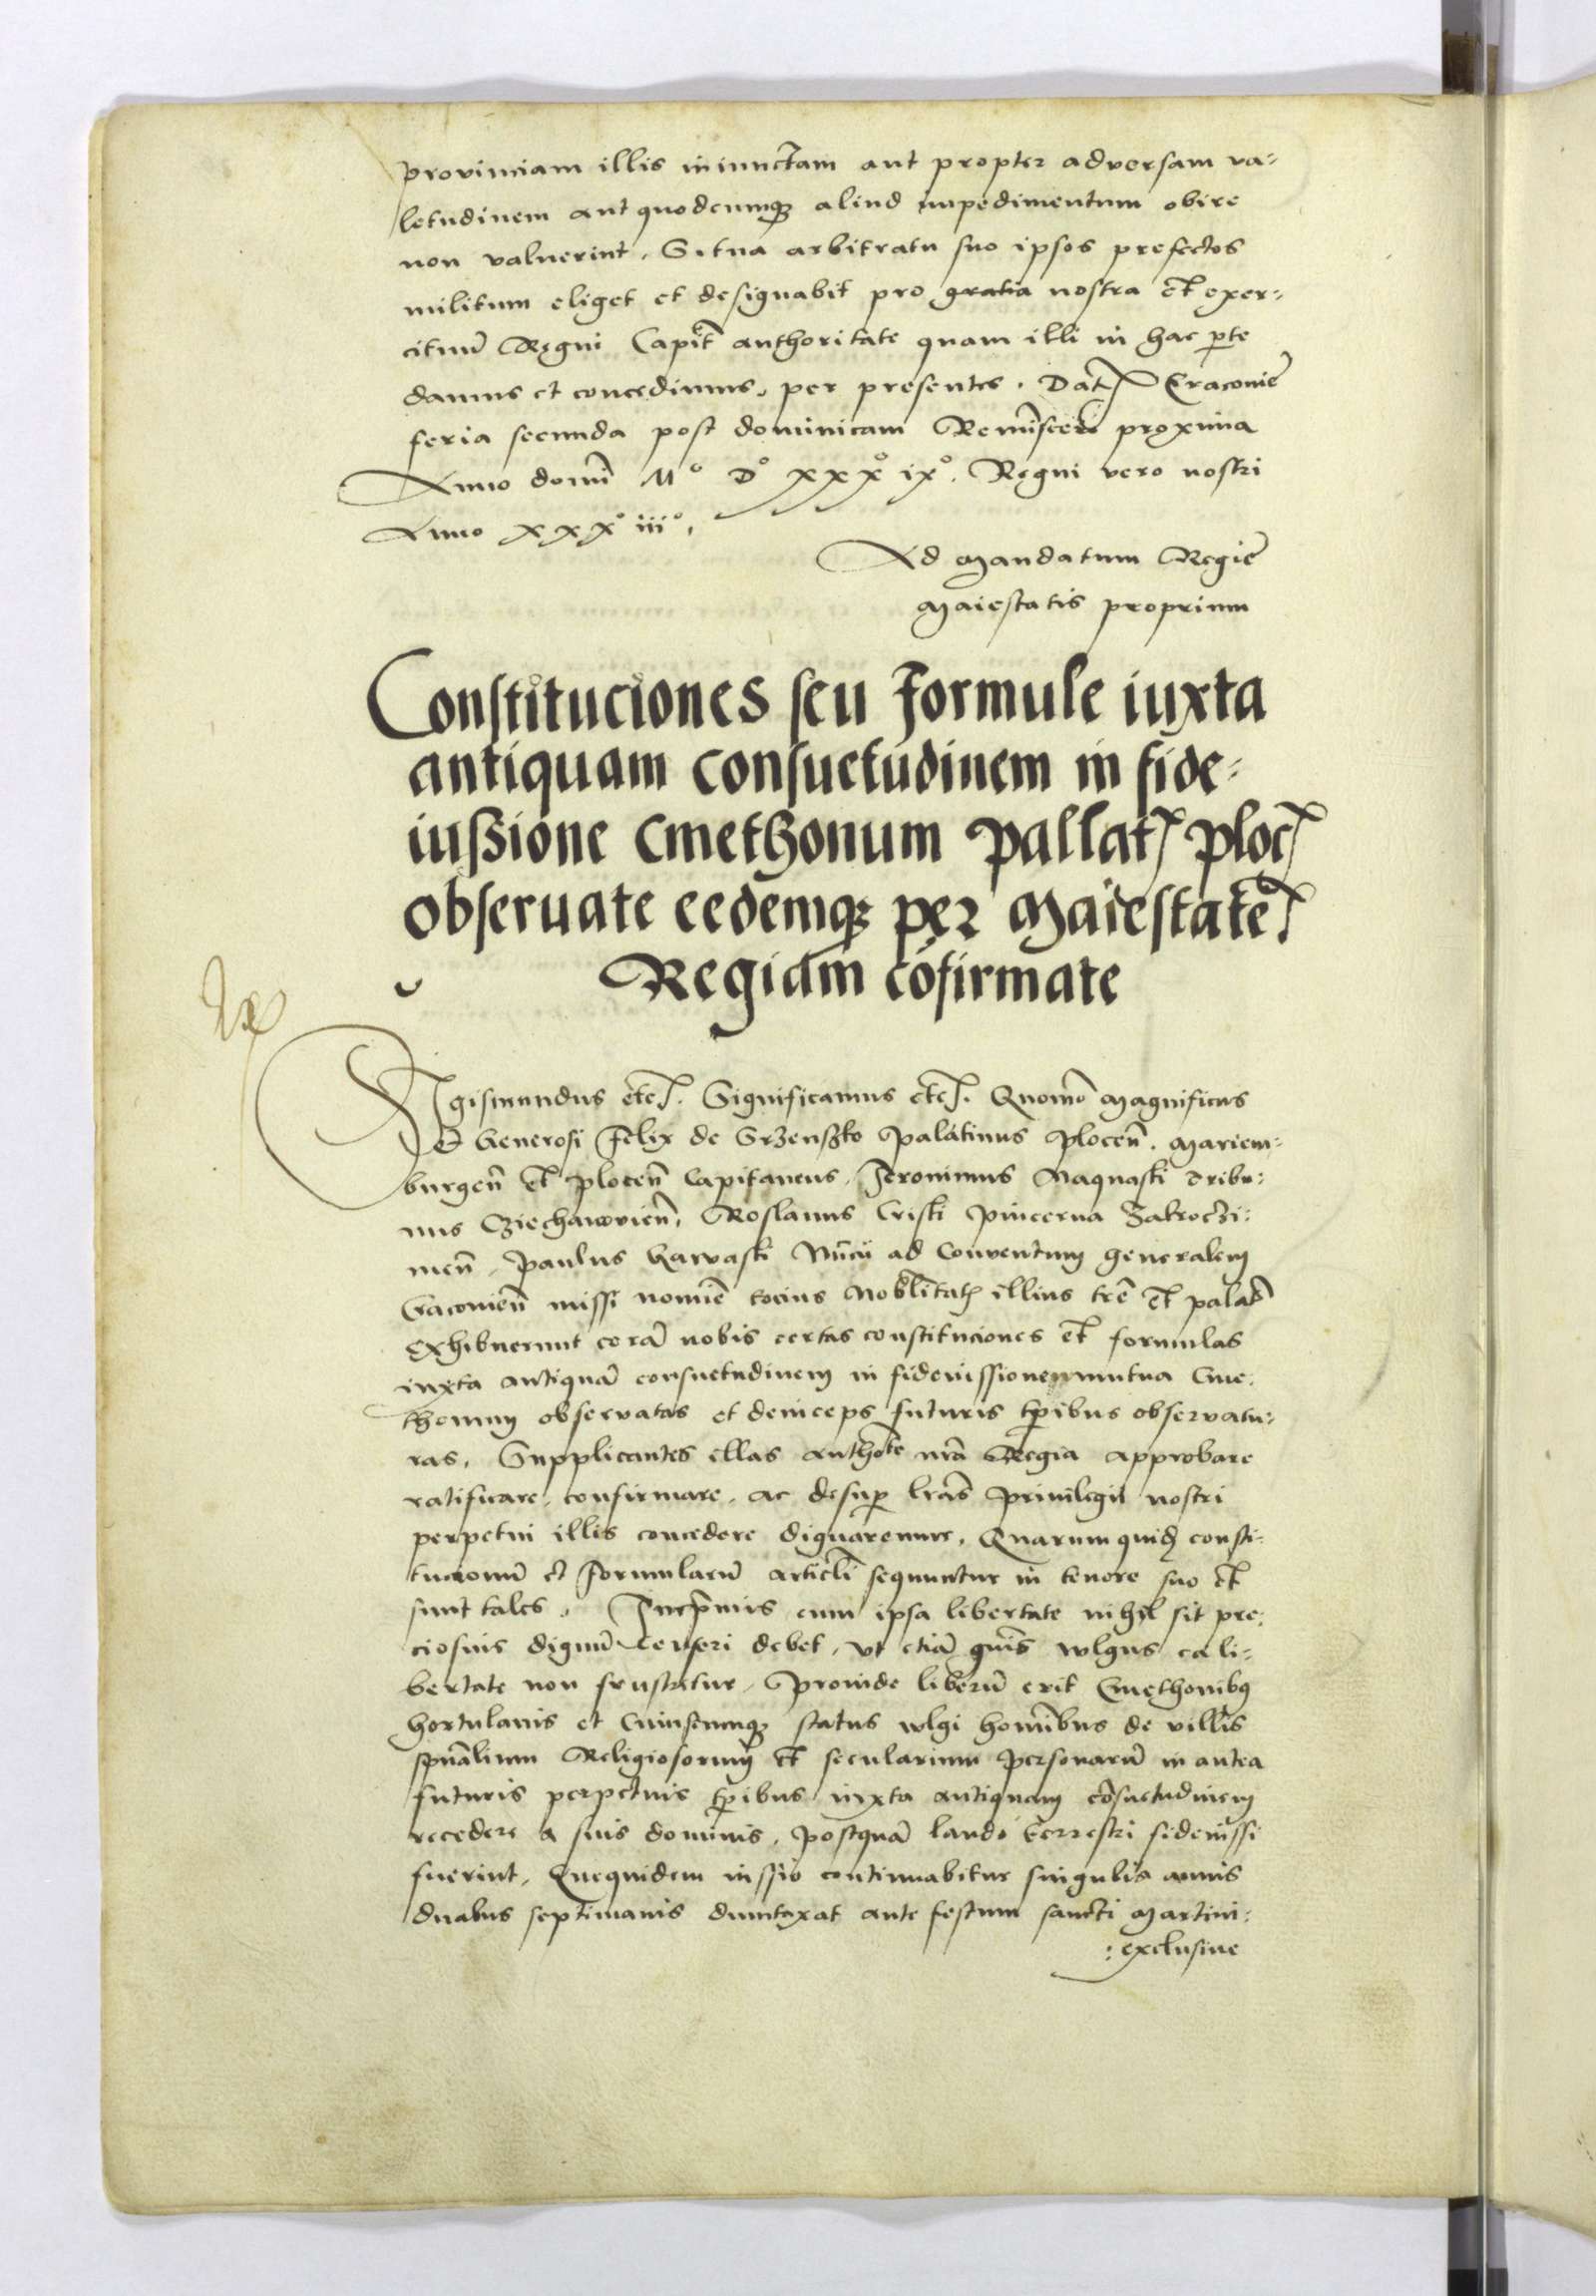 provinciam illis iniunctam aut propter adversam va-
letudinem aut quodcumq3 aliud impedimentum obire
non valuerint, S. tua arbitratu suo ipsos prefectos
militum eliget et designabit pro gratia nostra et exer-
cituũ Regni Capit̃ authoritate quam illi in hac ꝑte
damus et concedimus, per presentes. Dat̃ Cracoviẽ
feria secunda post dominicam Reminiscere proxima
Anno domĩ M° D° xxx° ix°. Regni vero nostri
Anno xxx° iii°.
Ad Mandatum Regiẽ
Maiestatis proprium
Constituciones seu formule iuxta
antiquam consuetudinem in fide-
iussione Cmethonum Pallat̃ Ploc̃
observate eedemq3 per Maiestatẽ
Regiam cõfirmate
Sigismundus etc̃. Significamus etc̃. Quomõ Magnificus
Et Generosi Felix de Srzenszko Palatinus Plocen̄. Mariem-
burgen̄ et Plocen̄ Capitaneus, Ieronimus Naquaski Tribu-
nus Cziechanovien̄, Roslanus Criski Pincerna Zakroczi-
men̄, Paulus Garvaski Nuncii ad Conventum generalem
Cracovien̄ missi nomiẽ tocius Nobilitat̃ illius tr̃e et palat̃
Exhibuerunt corã nobis certas constituciones et formulas
iuxta antiquã consuetudinem in fideiussionem mutua Cme-
thonum observatas et deinceps futuris tꝑibus observatu-
ras, Supplicantes illas authoꝛ̃te nr̃a Regia approbare
ratificare, confirmare, ac desuꝑ lr̃as privilegii nostri
perpetui illis concedere dignaremur, Quarum quid̃ consti-
tucionũ et formularũ articĺi sequuntur in tenore suo et
sunt tales. Inpr̃imis cum ipsa libertate nihil sit pre-
ciosius dignũ censeri debet, ut etiã quis wlgus ea li-
bertate non frustretur, Proinde liberũ erit Cmethonibus
hortulanis et cuiuscumq3 status wlgi homĩbus de villis
spũalium Religiosorum et secularium personarũ in antea
futuris perpetuis tꝑibus iuxta antiquam cõsuetudinem
recedere a suis dominis, postquã laudo terrestri fideiussi
fuerint, Quequidem iussio continuabitur singulis annis
duabus septimanis dumtaxat ante festum sancti Martini:
: exclusive